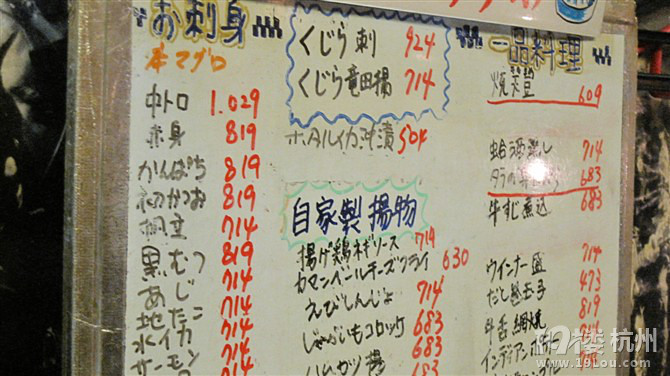 お刺身
本マグロ
中トロ 1.029
赤身 819
かんぱち 819
初かつお 819
桐立 714
黒むつ 819
あじ 714
地たこ 714
水イカ 714
サーモン 714
くじら刺 924
くじら竜田揚 714
ホタルイカ沖漬 504
自家製揚物
揚げ鶏ネギソース 714
カマンベールチーズフライ 630
えびしんじょ 714
じゃがいもコロッケ 683
ハムカツ揚 683
一品料理
焼 609
蛤酒蒸し 714
683
牛すじ煮込 683
ウインナー盛 714
だし巻玉子 473
牛舌網焼 819
インディアン
19楼 杭州
www.19lou.com